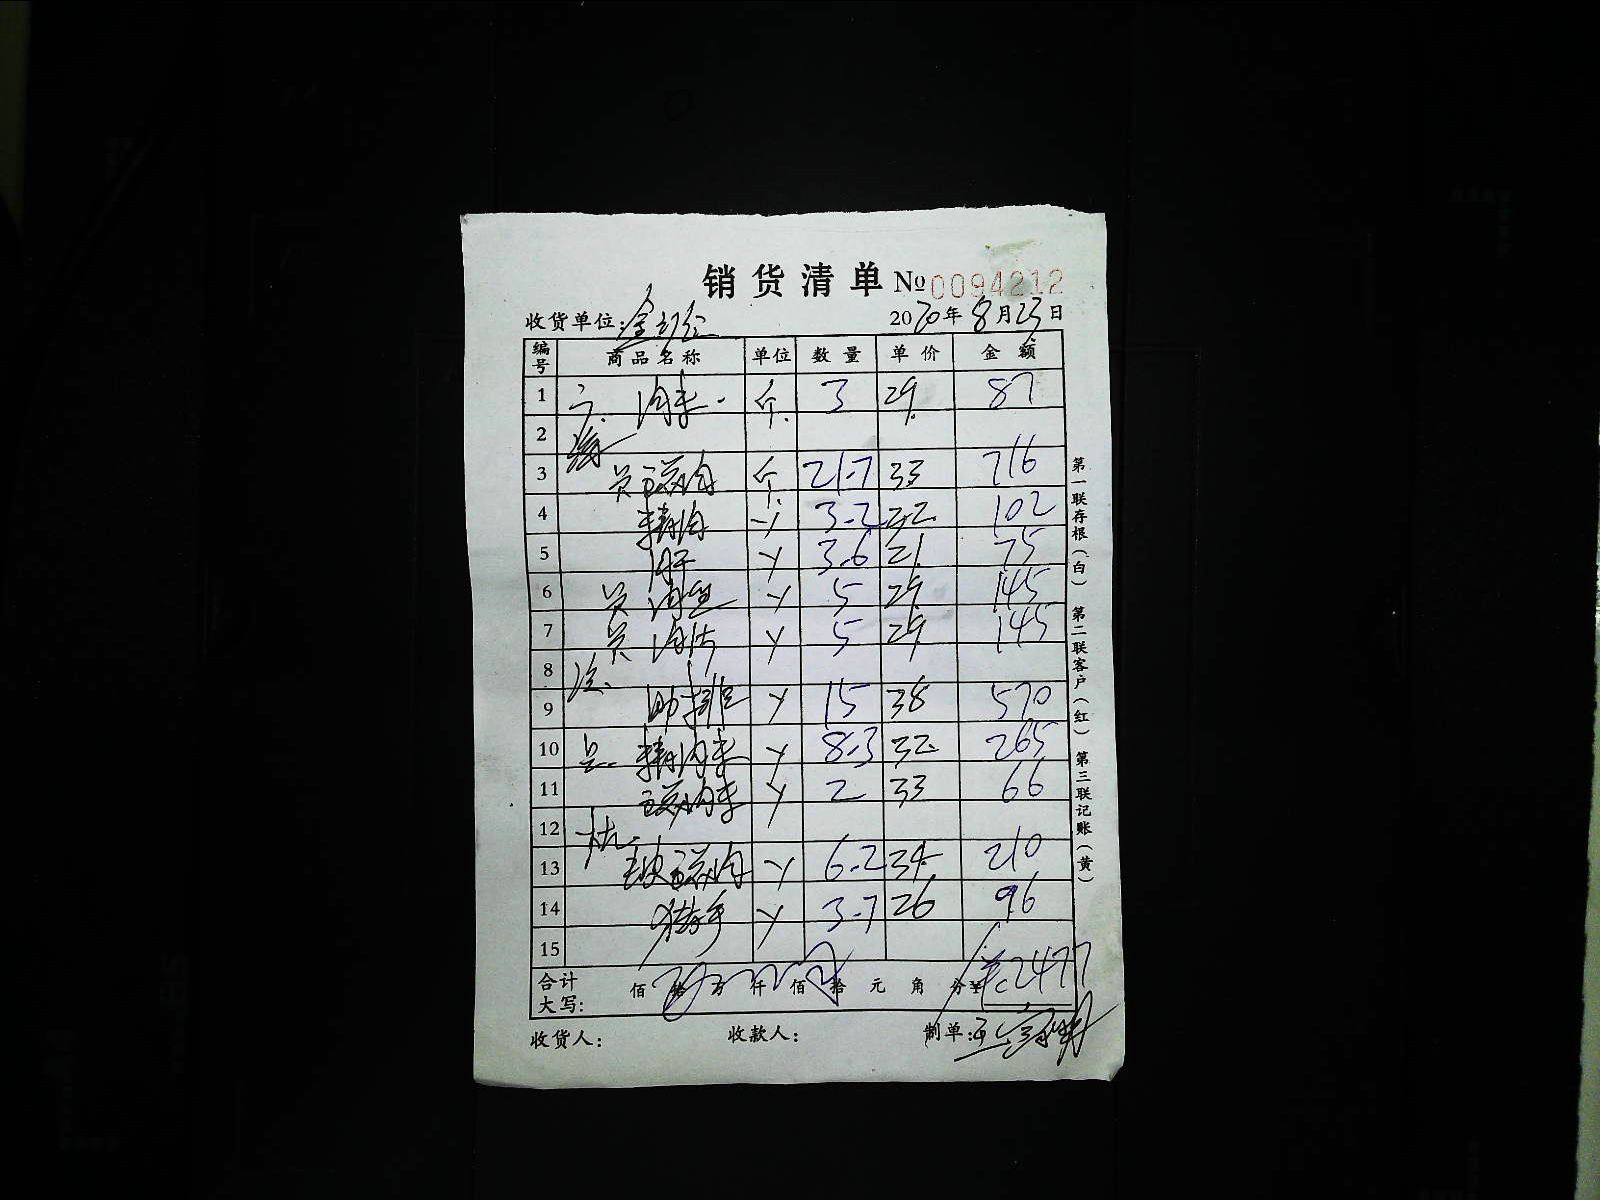 销货清单 No 0094212
收货单位:
2020年8月25日
编号 商品名称 单位 数量 单价 金额
1 肉末 个 3 29 87
2
3 五花肉 个 21.7 33 716
4 精肉 3.2 32 102
5 3.6 21 75
6 肉丝 5 29 145
7 肉片 5 29 145
8
9 肋排 15 38 570
10 精肉末 8.3 32 265
11 五花肉末 2 33 66
12
13 五花肉 6.2 34 210
14 猪手 3.7 26 96
15
合计大写: 佰 拾 万 仟 佰 拾 元 角 分 ¥: 2477
收货人: 收款人: 制单:
第一联存根(白) 第二联客户(红) 第三联记账(黄)